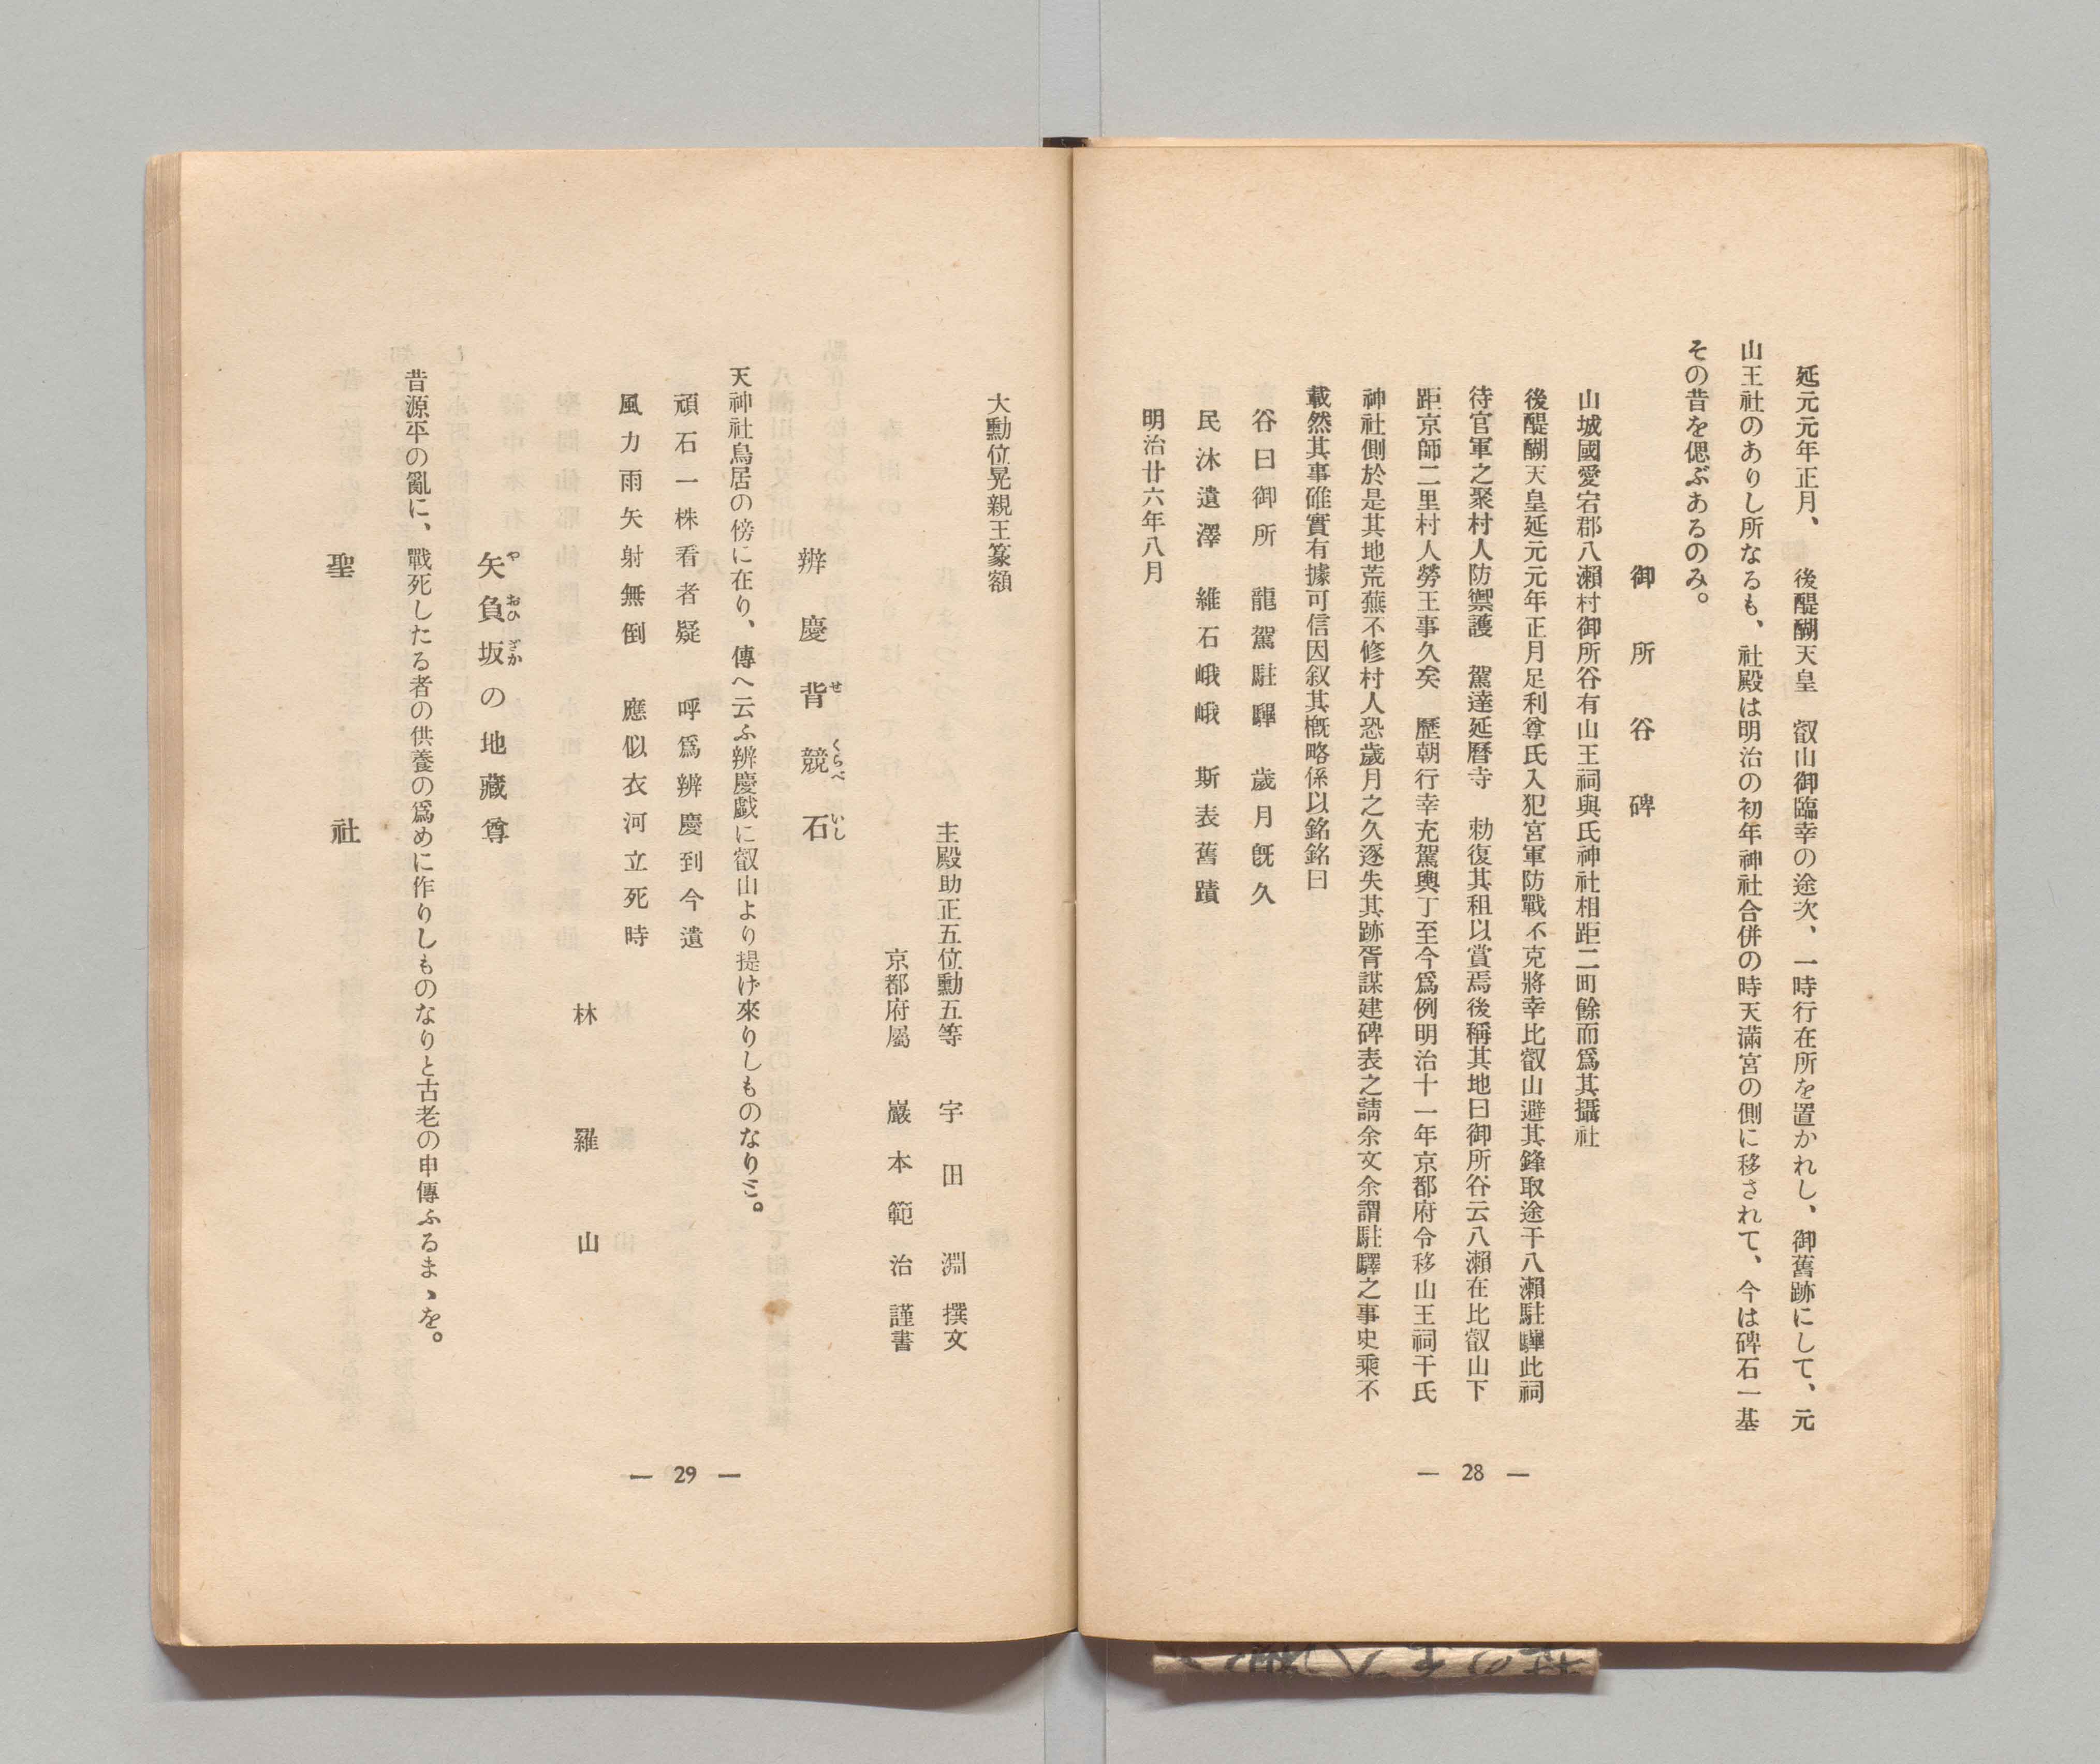 延元元年正月、後醍醐天皇　叡山御臨幸の途次、一時行在所を置かれし、御舊跡にして、元
山王社のありし所なるも、社殿は明治の初年神社合併の時天滿宮の側に移されて、今は碑石一基
その昔を偲ぶあるのみ。
御所谷碑
山城國愛宕郡八瀨村御所谷有山王祠與氏神社相距二町餘而爲其攝社
後醍醐天皇延元元年正月足利尊氏入犯宮軍防戰不克將幸比叡山避其鋒取途干八瀨駐驆此祠
待官軍之聚村人防禦護　駕達延曆寺　勅復其租以賞焉後稱其地曰御所谷云八瀨在比叡山下
距京師二里村人勞王事久矣　歷朝行幸充駕輿丁至今爲例明治十一年京都府令移山王祠干氏
神社側於是其地荒蕪不修村人恐歲月之久逐失其跡胥謀建碑表之請余文余謂駐驛之事史乘不
載然其事確實有據可信因叙其槪略係以銘銘曰
谷曰御所　龍駕駐驆　歲月既久
民沐遺澤　維石峨峨　斯表舊蹟
明治廿六年八月
— 28 —
大勳位晃親王篆額
主殿助正五位勳五等　宇田　淵　撰文
京都府屬　巖本範治　謹書
辨慶背競石
せ　くらべ　いし
天神社鳥居の傍に在り、傳へ云ふ辨慶戯に叡山より提げ來りしものなりミ。
頑石一株看者疑　呼爲辨慶到今遺
風力雨矢射無倒　應似衣河立死時
林羅山
矢負坂の地藏尊
や　おひ　ざか
昔源平の亂に、戰死したる者の供養の爲めに作りしものなりと古老の申傳ふるまゝを。
聖社
— 29 —